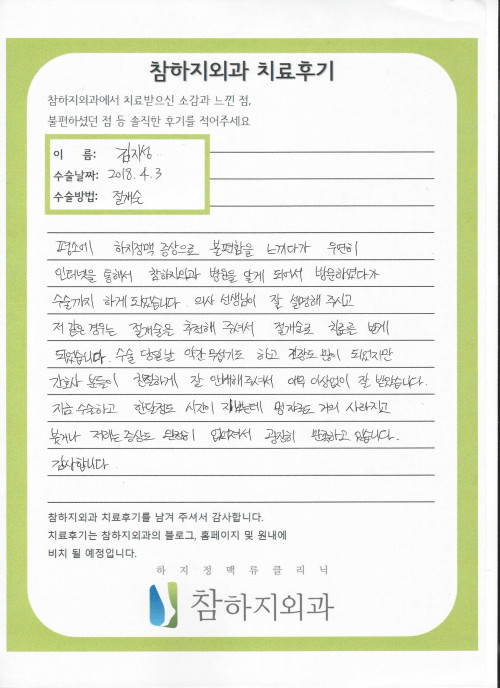 참하지외과 치료후기
참하지외과에서 치료받으신 소감과 느낀 점,
불편하셨던 점 등 솔직한 후기를 적어주세요
이 름: 김지성
수술날짜: 2018. 4. 3
수술방법: 절개술
평소에 하지정맥 증상으로 불편함을 느끼다가 우연히
인터넷을 통해서 참하지외과 병원을 알게 되어서 방문하였다가
수술까지 하게 되었습니다. 의사 선생님이 잘 설명해 주시고
저 같은 경우는 절개술은 추천해 주셔서 절개술로 치료를 받게
되었습니다. 수술 당일날 약간 무섭기도 하고 긴장도 많이 되었지만
간호사 분들이 친절하게 잘 안내해주셔서 아무 이상없이 잘 받았습니다.
지금 수술하고 한달정도 시간이 지났는데 멍자국도 거의 사라지고
붓거나 저리는 증상도 완전히 없어져서 굉장히 만족하고 있습니다.
감사합니다.
참하지외과 치료후기를 남겨 주셔서 감사합니다.
치료후기는 참하지외과의 블로그, 홈페이지 및 원내에
비치 될 예정입니다.
하지정맥류클리닉
참하지외과